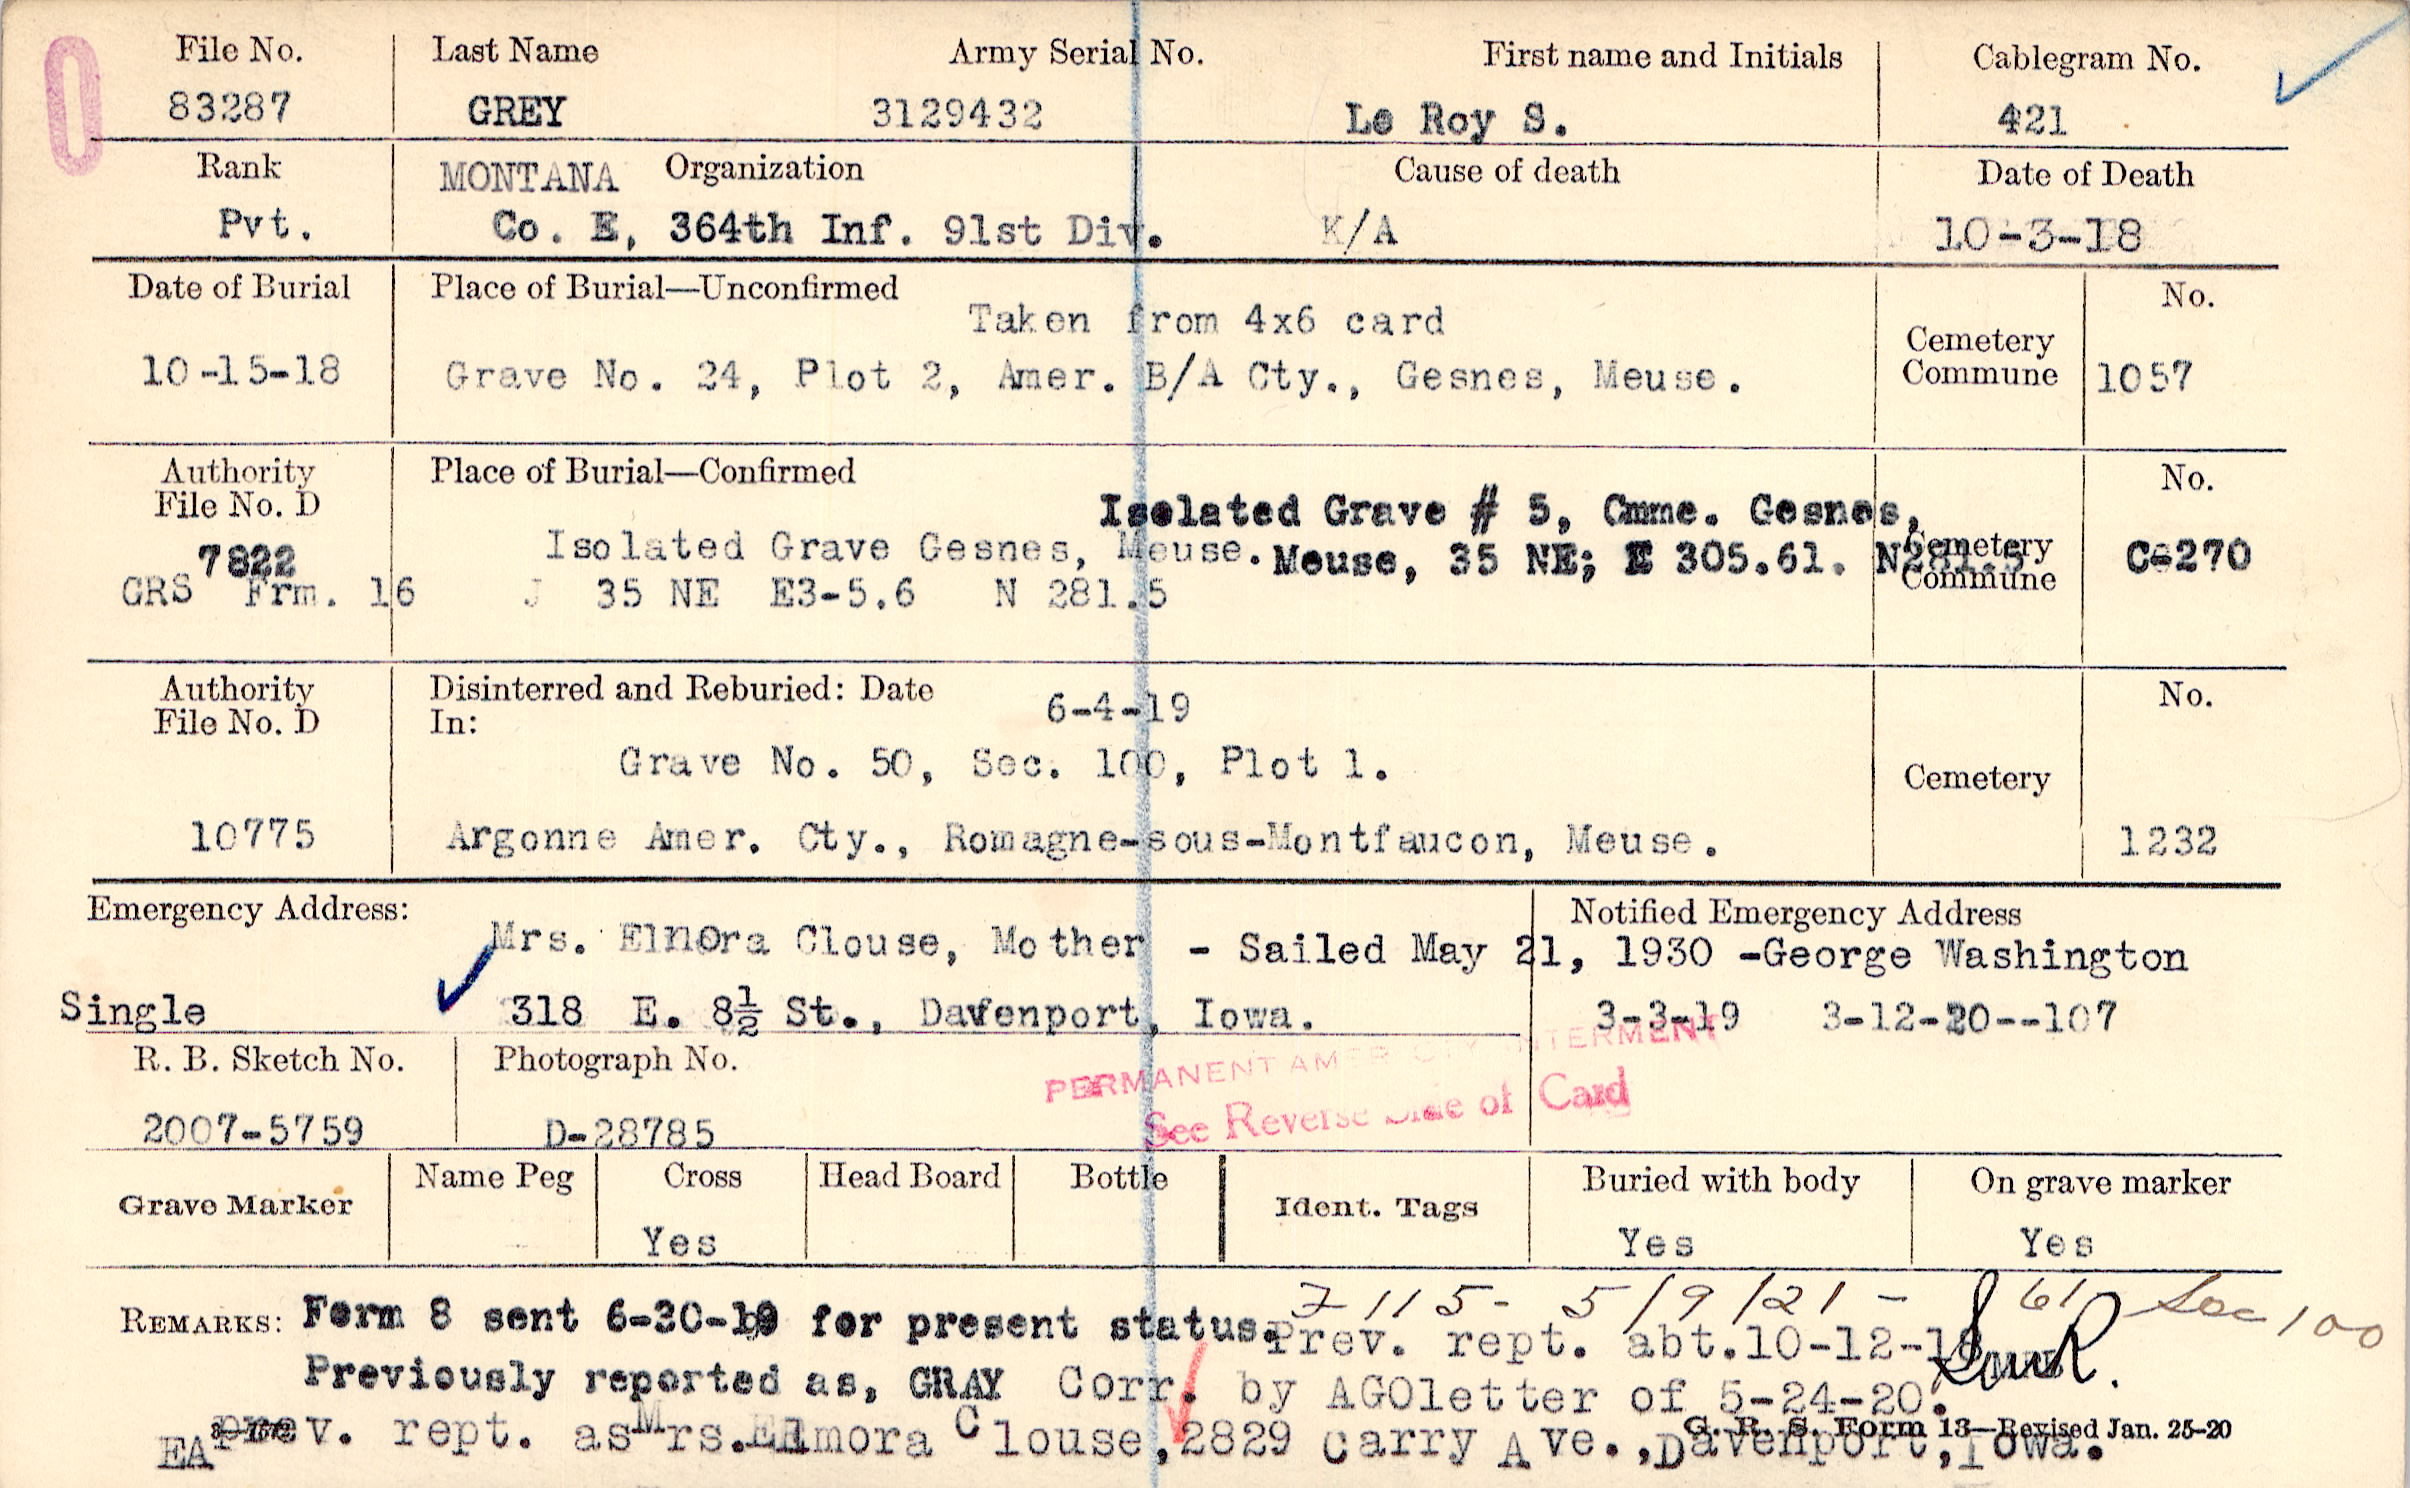 File No. Last Name Army Serial No. First name and Initials Cablegram No.
83287 GREY 3129432 Le Roy S. 421
Rank MONTANA Organization Cause of death Date of Death
Pvt. Co. E, 364th Inf. 91st Div. K/A 10-3-18
Date of Burial Place of Burial—Unconfirmed No.
Taken from 4x6 card
10-15-18 Grave No. 24, Plot 2, Amer. B/A Cty., Gesnes, Meuse. Cemetery Commune 1057
Authority File No. D Place of Burial—Confirmed No.
Isolated Grave # 5, Cmme. Gesnes,
7822 Isolated Grave Gesnes, Meuse. Meuse, 35 NE; E 305.61. N281.5 Cemetery Commune C-270
GRS Frm. 16 J 35 NE E3-5.6 N 281.5
Authority File No. D Disinterred and Reburied: Date 6-4-19 No.
In:
Grave No. 50, Sec. 100, Plot 1. Cemetery
10775 Argonne Amer. Cty., Romagne-sous-Montfaucon, Meuse. 1232
Emergency Address: Notified Emergency Address
Mrs. Elnora Clouse, Mother - Sailed May 21, 1930 -George Washington
Single 318 E. 8½ St., Davenport, Iowa. 3-3-19 3-12-20--107
R. B. Sketch No. Photograph No. PERMANENT AMER CTY INTERMENT
See Reverse Side of Card
2007-5759 D-28785
Grave Marker Name Peg Cross Head Board Bottle Ident. Tags Buried with body On grave marker
Yes Yes Yes
7115- 5/9/21- 61 Sec 100
REMARKS: Form 8 sent 6-30-19 for present status. Prev. rept. abt. 10-12-18
Previously reported as, GRAY Corr. by AGOletter of 5-24-20.
EA prev. rept. as Mrs. Elmora Clouse, 2829 Carry Ave., Davenport, Iowa.
G. R. S. Form 13—Revised Jan. 25-20